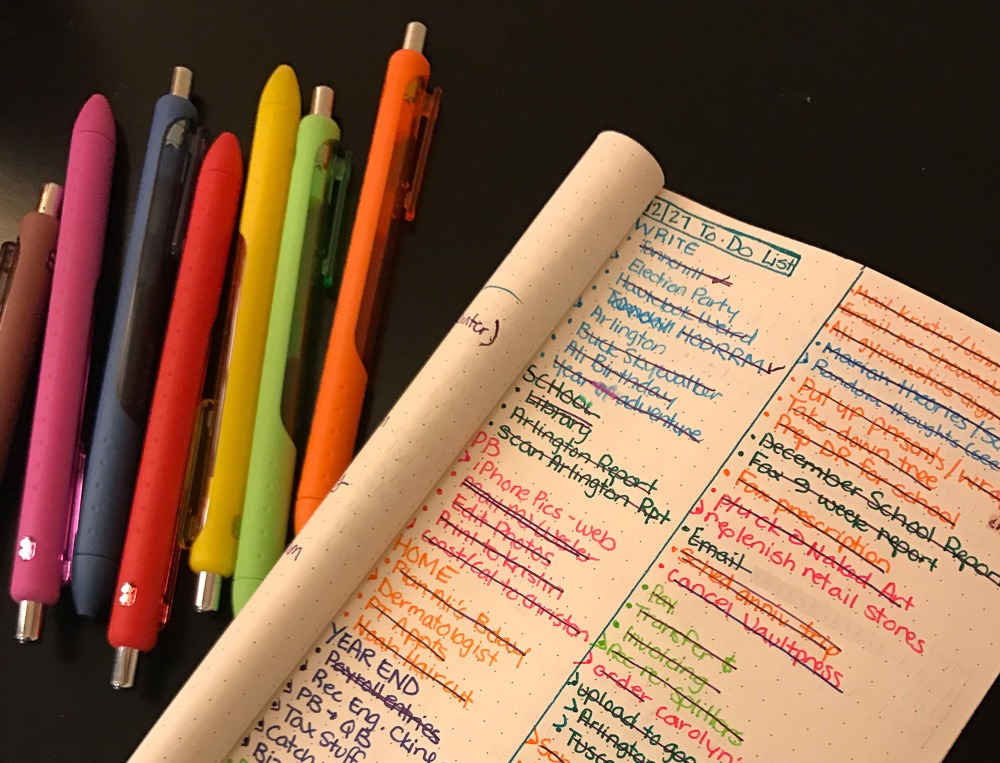 12/27 To-Do List
WRITE
Election Party
Hancock Weird
HCDRRMV
Arlington
Buck Skywalker
Ali Birthday
Year of adventure
SCHOOL
Library
Arlington Report
scan Arlington Rpt
PB
iPhone Pics - web
Edit Photos
Print to Kristin
coast/cal to christen
HOME
Dermatologist
PT Appts
Noah haircut
YEAR END
Payroll entries
Rec Eng. Ckin
PB → QB
Tax Stuff
Catch
Biz
Mail Kristin/
Ali gymnastics
Marian theories /
Random thoughts
Put up presents/
Take down tree
Prep DR for School
December School Report
Fax 9 week report
Fax prescription
Pluck & Nailed Art
Replenish retail stores
Email
Sched anniv trip
cancel Vaultpress
Pay
Transfer $
Invoicing
order carolyn's
upload to goo
Arlington
Tusc
unter)